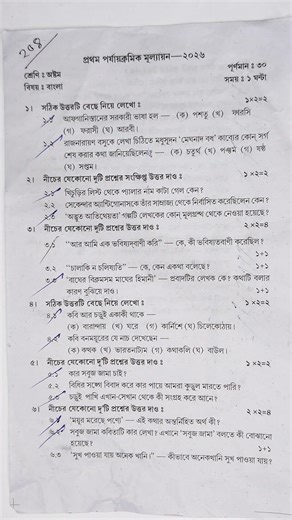 ২০৪
প্রথম পর্যায়ক্রমিক মূল্যায়ন—২০২৬
শ্রেণি : অষ্টম
পূর্ণমান : ৩০
বিষয় : বাংলা
সময় : ১ ঘন্টা
১। সঠিক উত্তরটি বেছে নিয়ে লেখো : ১×২=২
১.১ আফগানিস্তানের সরকারী ভাষা হল — (ক) পশতু (খ) ফারসি
(গ) ফরাসী (ঘ) আরবী।
১.২ রাজনারায়ন বসুকে লেখা চিঠিতে মধুসূদন 'মেঘনাদ বধ' কাব্যের কোন্ সর্গ
শেষ করার কথা জানিয়েছিলেন? — (ক) চতুর্থ (খ) পঞ্চম (গ) ষষ্ঠ
(ঘ) সপ্তম।
২। নীচের যেকোনো দু'টি প্রশ্নের সংক্ষিপ্ত উত্তর দাও : ১×২=২
২.১ খিচুড়ির লিস্ট থেকে প্যালার নাম কাটা গেল কেন?
২.২ সেকেন্দার অ্যান্টিগোনাসকে তাঁর সাম্রাজ্য থেকে নির্বাসিত করেছিলেন কেন?
২.৩ 'অদ্ভুত আতিথেয়তা' গল্পটি লেখকের কোন্ মূলগ্রন্থ থেকে নেওয়া হয়েছে?
৩। নীচের যেকোনো দু'টি প্রশ্নের উত্তর দাও : ২×২=৪
৩.১ "আর আমি এক ভবিষ্যদ্‌বাণী করি" — কে, কী ভবিষ্যতবাণী করেছিল?
১+১
৩.২ "চালাকি ন চলিষ্যতি" — কে, কেন একথা বলেছে? ১+১
৩.৩ "বাঘের বিক্রমসম মাঘের হিমানী" — প্রবাদটির লেখক কে? কথাটি বলার
কারণ বুঝিয়ে দাও। ১+১
৪। সঠিক উত্তরটি বেছে নিয়ে লেখো : ১×২=২
৪.১ কবি আর চড়ুই একাকী থাকে —
(ক) বারান্দায় (খ) ঘরে (গ) কার্নিশে (ঘ) চিলেকোঠায়।
৪.২ কবি বনময়ূরের যে নাচ দেখেছেন —
(ক) কত্থক (খ) ভারতনাট্যম (গ) কথাকলি (ঘ) বাউল।
৫। নীচের যেকোনো দু'টি প্রশ্নের উত্তর দাও : ১×২=২
৫.১ কার সবুজ জামা চাই?
৫.২ বিধির সঙ্গে বিবাদ করে কার পায়ে আমরা কুড়ুল মারতে পারি?
৫.৩ চড়ুই পাখি এখান-সেখান থেকে কী সংগ্রহ করে আনে?
৬। নীচের যেকোনো দু'টি প্রশ্নের উত্তর দাও : ২×২=৪
৬.১ 'ময়ূর মরেছে পণ্যে' — এই কথার অন্তর্নিহিত অর্থ কী?
৬.২ সবুজ জামা কবিতাটি কার লেখা? এখানে 'সবুজ জামা' বলতে কী বোঝানো
হয়েছে? ১+১
৬.৩ 'সুখ পাওয়া যায় অনেক খানি।' — কীভাবে অনেকখানি সুখ পাওয়া যায়?